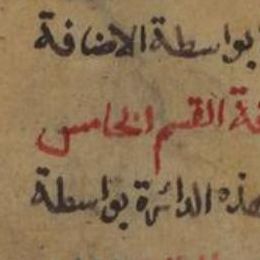 بواسطة الاضافة
القسم الخامس
هذه الدائرة بواسطة